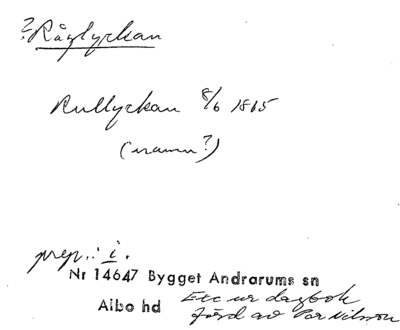 ? Råglyckan
Rullyckan 8/6 1815
(namn?)
prep.: i.
Nr 14647 Bygget Andrarums sn
Albo hd Exc ur dagbok
förd av Per Nilsson